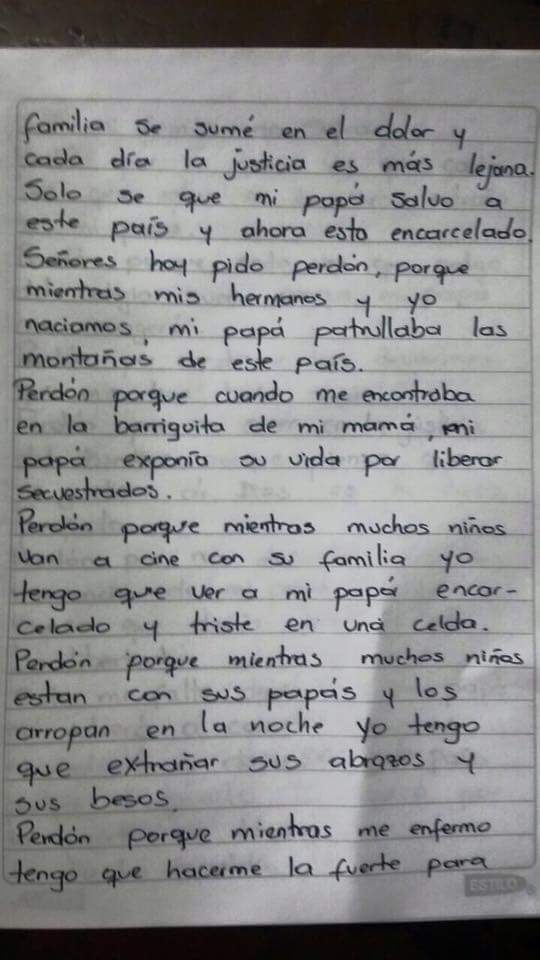 familia se sumé en el dolor y
cada día la justicia es más lejana.
Solo se que mi papá salvo a
este país y ahora esta encarcelado.
Señores hoy pido perdón, porque
mientras mis hermanos y yo
naciamos, mi papá patrullaba las
montañas de este país.
Perdón porque cuando me encontraba
en la barriguita de mi mamá, mi
papá exponía su vida por liberar
secuestrados.
Perdón porque mientras muchos niños
van a cine con su familia yo
tengo que ver a mi papá encar-
celado y triste en una celda.
Perdón porque mientras muchos niños
estan con sus papás y los
arropan en la noche yo tengo
que extrañar sus abrazos y
sus besos.
Perdón porque mientras me enfermo
tengo que hacerme la fuerte para
ESTILO